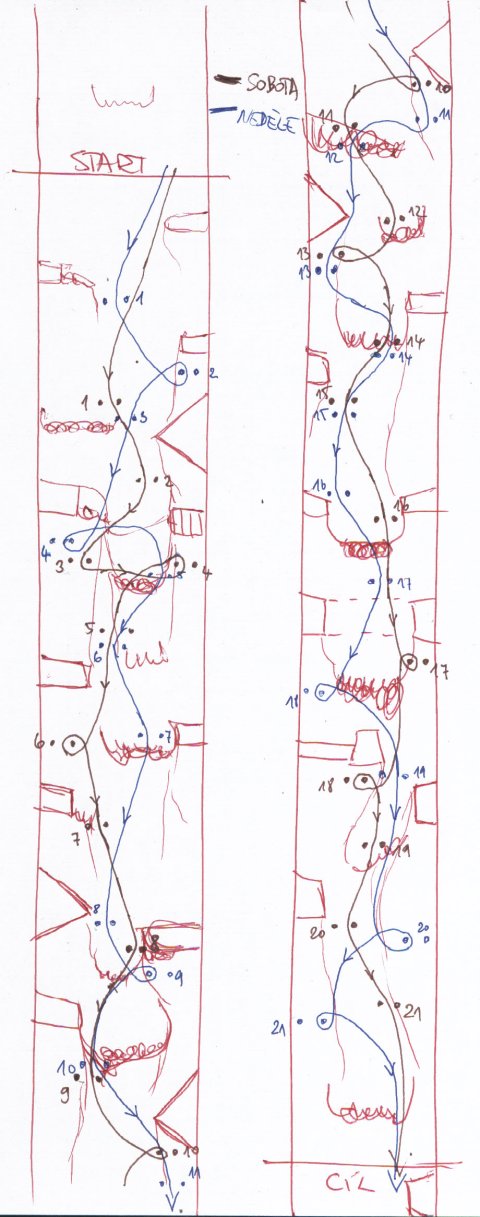 SOBOTA
NEDĚLE
START
1
2
1
3
2
4
3
5
4
5
6
6
7
7
8
8
9
10
9
10
11
10
11
11
12
12
13
13
14
14
15
15
16
16
17
17
18
18
19
19
20
20
21
21
CÍL